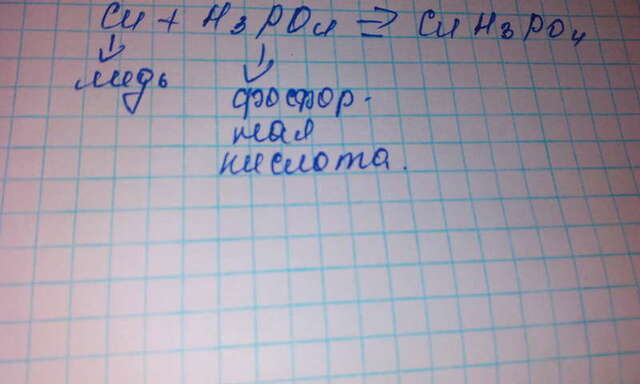 Cu + H3PO4 => Cu H3PO4
медь фосфор-
ная
кислота.